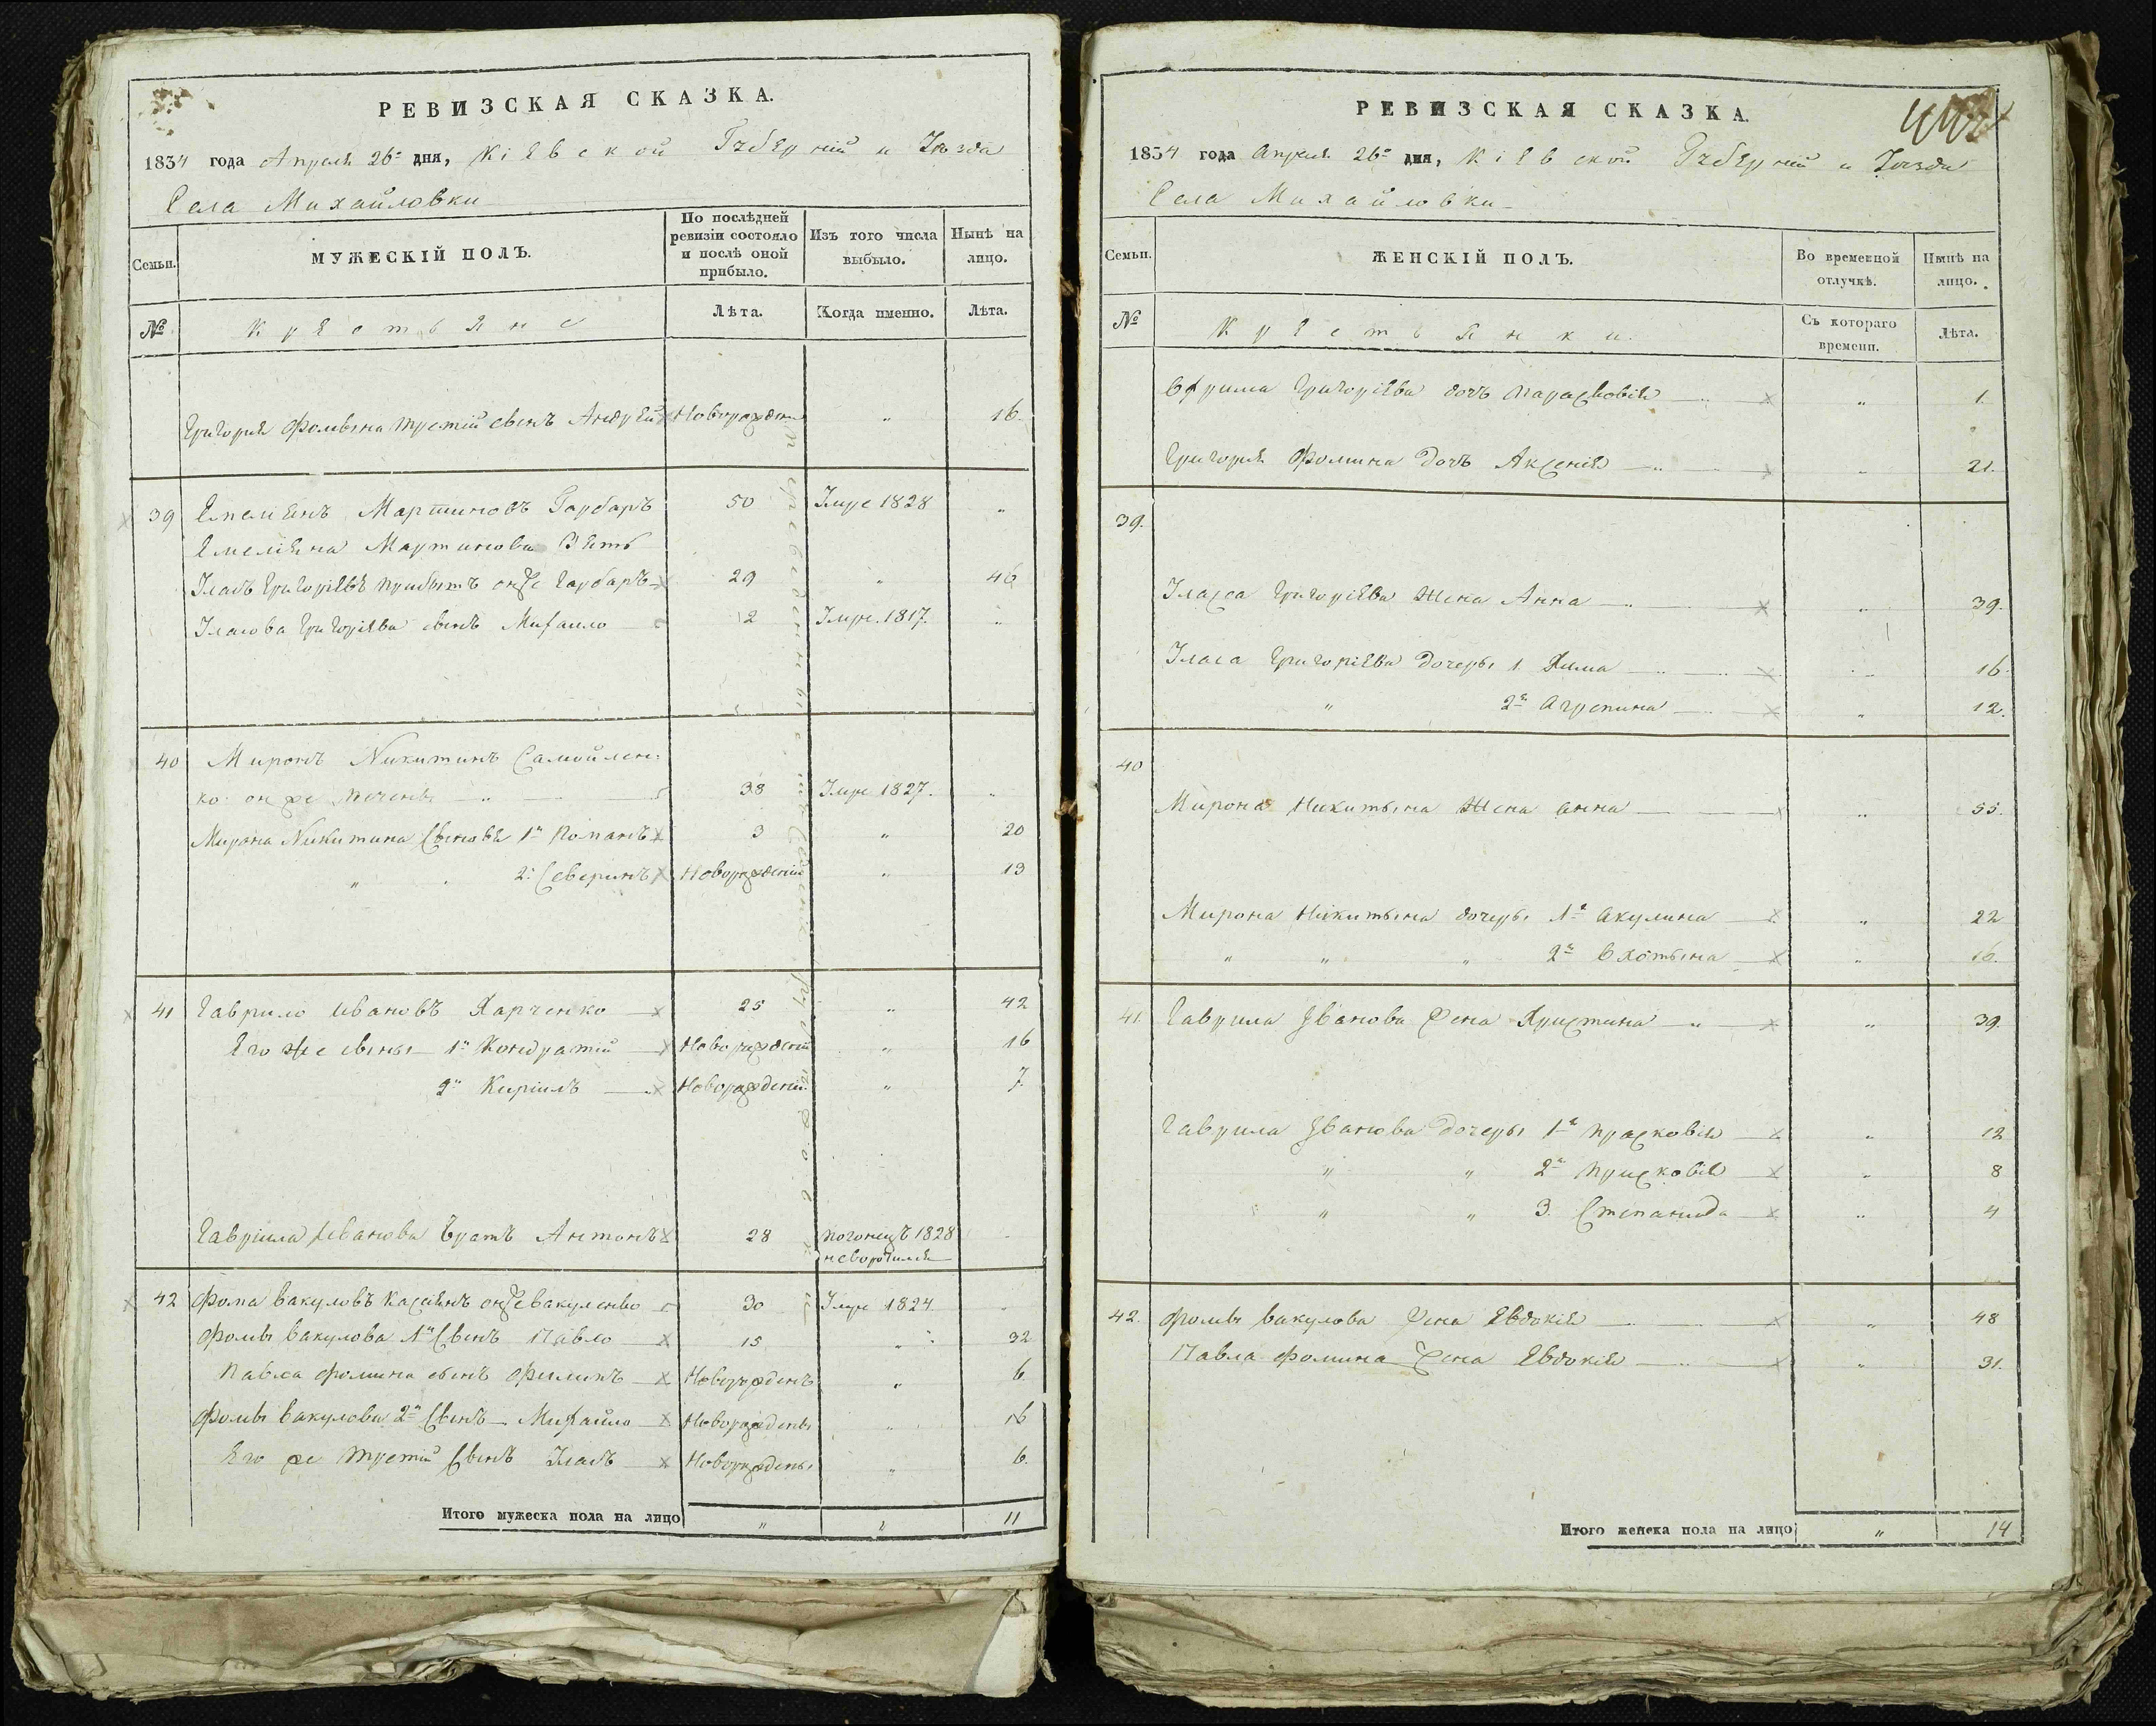 РЕВИЗСКАЯ СКАЗКА.
1834 года Апреля 26го дня, Кіевской Губерніи и Уезда
Села Михайловки
Семьи.
МУЖЕСКІЙ ПОЛЪ.
По послѣдней ревизіи состояло и послѣ оной прибыло.
Изъ того числа выбыло.
Нынѣ на лицо.
№
Крестьяне
Лѣта.
Когда именно.
Лѣта.
Григорія Фомына третій сынъ Андрей Новорожден " 16.
39 Емелiянъ Мартиновъ Гарбаръ 50 Умре 1828 "
Емелiяна Мартинова Зять
Уласъ Григоріевъ онже Гарбаръ 29 " 46
Уласова Григоріева сынъ Михаило 12 Умре. 1817. "
40 Миронъ Никитинъ Самойлен:
ко онже 38 Умре 1827. "
Мирона Никитина Сыновя 1й Романъ 3 " 20
" " 2. Северинъ Новорожденій " 13
41 Гаврило Ивановъ Харченко 25 " 42
Его же сыны 1й Кондратій Новорожденій " 16
2й Кирилъ Новорожденій " 7
Гавріила Иванова братъ Антонъ 28 погонецъ 1828
неворотился
42 Фома Вакуловъ Касіянъ онже Вакуленко 30 Умре 1824 "
Фомы Вакулова 1й Сынъ Павло 15 " 32
Павла Фомина сынъ Филипъ Новорожденъ " 6
Фомы Вакулова 2й Сынъ Михайло Новорождены " 16
Его же Третій Сынъ Уласъ Новорождены " 6.
Итого мужеска пола на лицо " " 11
РЕВИЗСКАЯ СКАЗКА.
1834 года Апреля 26го дня, Кіевской Губерніи и Уезда
Села Михайловки
Семьи.
ЖЕНСКІЙ ПОЛЪ.
Во временной отлучкѣ.
Нынѣ на лицо.
№
Крестьянки.
Съ котораго времени.
Лѣта.
Григоріева дочъ Парасковія " 1.
Григорія Фомина Дочъ Аксенія " 21.
39.
Уласа Григоріева Жена Анна " 39.
Уласа Григоріева Дочеры 1. Хима " 16.
" 2я Агрепина " 12.
40
Мирона Никитына Жена Анна " 55.
Мирона Никитына дочеры 1я Акулина " 22
" " " 2я Вхотына " 16.
41. Гаврила Иванова Жена Христина " 39.
Гаврила Иванова Дочеры 1я Прасковія " 12
" " 2я Присковія " 8
" " 3. Степанида " 4
42. Фомы Вакулова Жена Евдокія " 48
Павла Фомина Жена Евдокія " 31.
Итого женска пола на лицо " 14